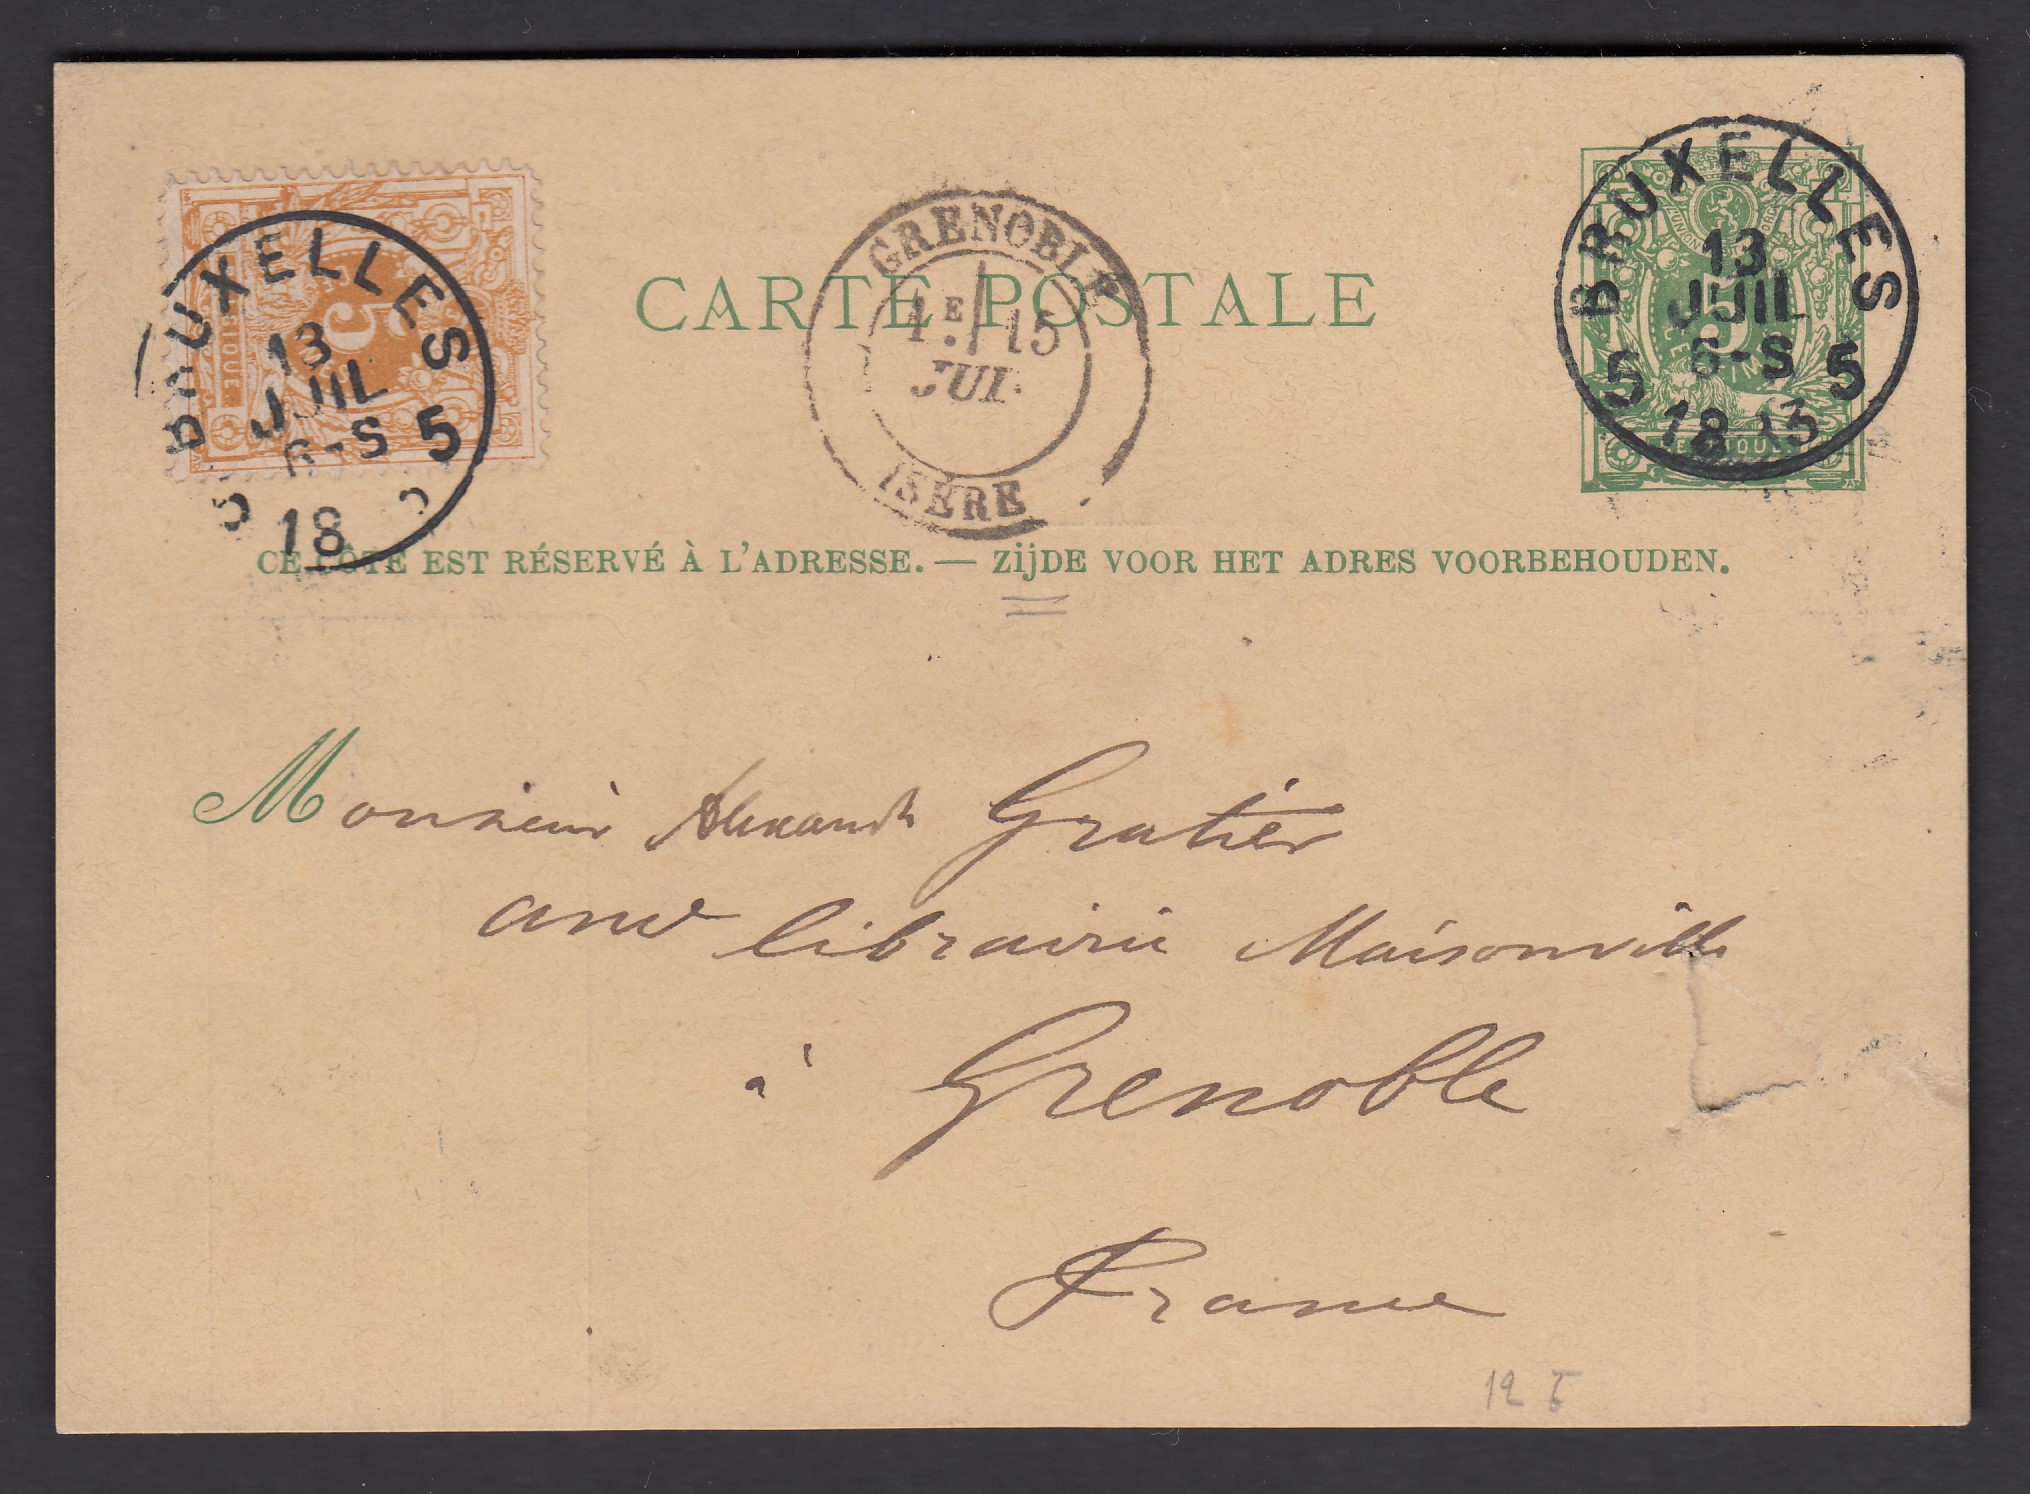 BRUXELLES
13
JUIL
6-S
5
18
GRENOBLE
1E 15
JUI
ISÈRE
BRUXELLES
13
JUIL
6-S
5 5
18
CARTE POSTALE
CE CÔTÉ EST RÉSERVÉ À L'ADRESSE. — ZIJDE VOOR HET ADRES VOORBEHOUDEN.
Monsieur Alexandre Gratier
anc librairie Maisonville
à Grenoble
France
12